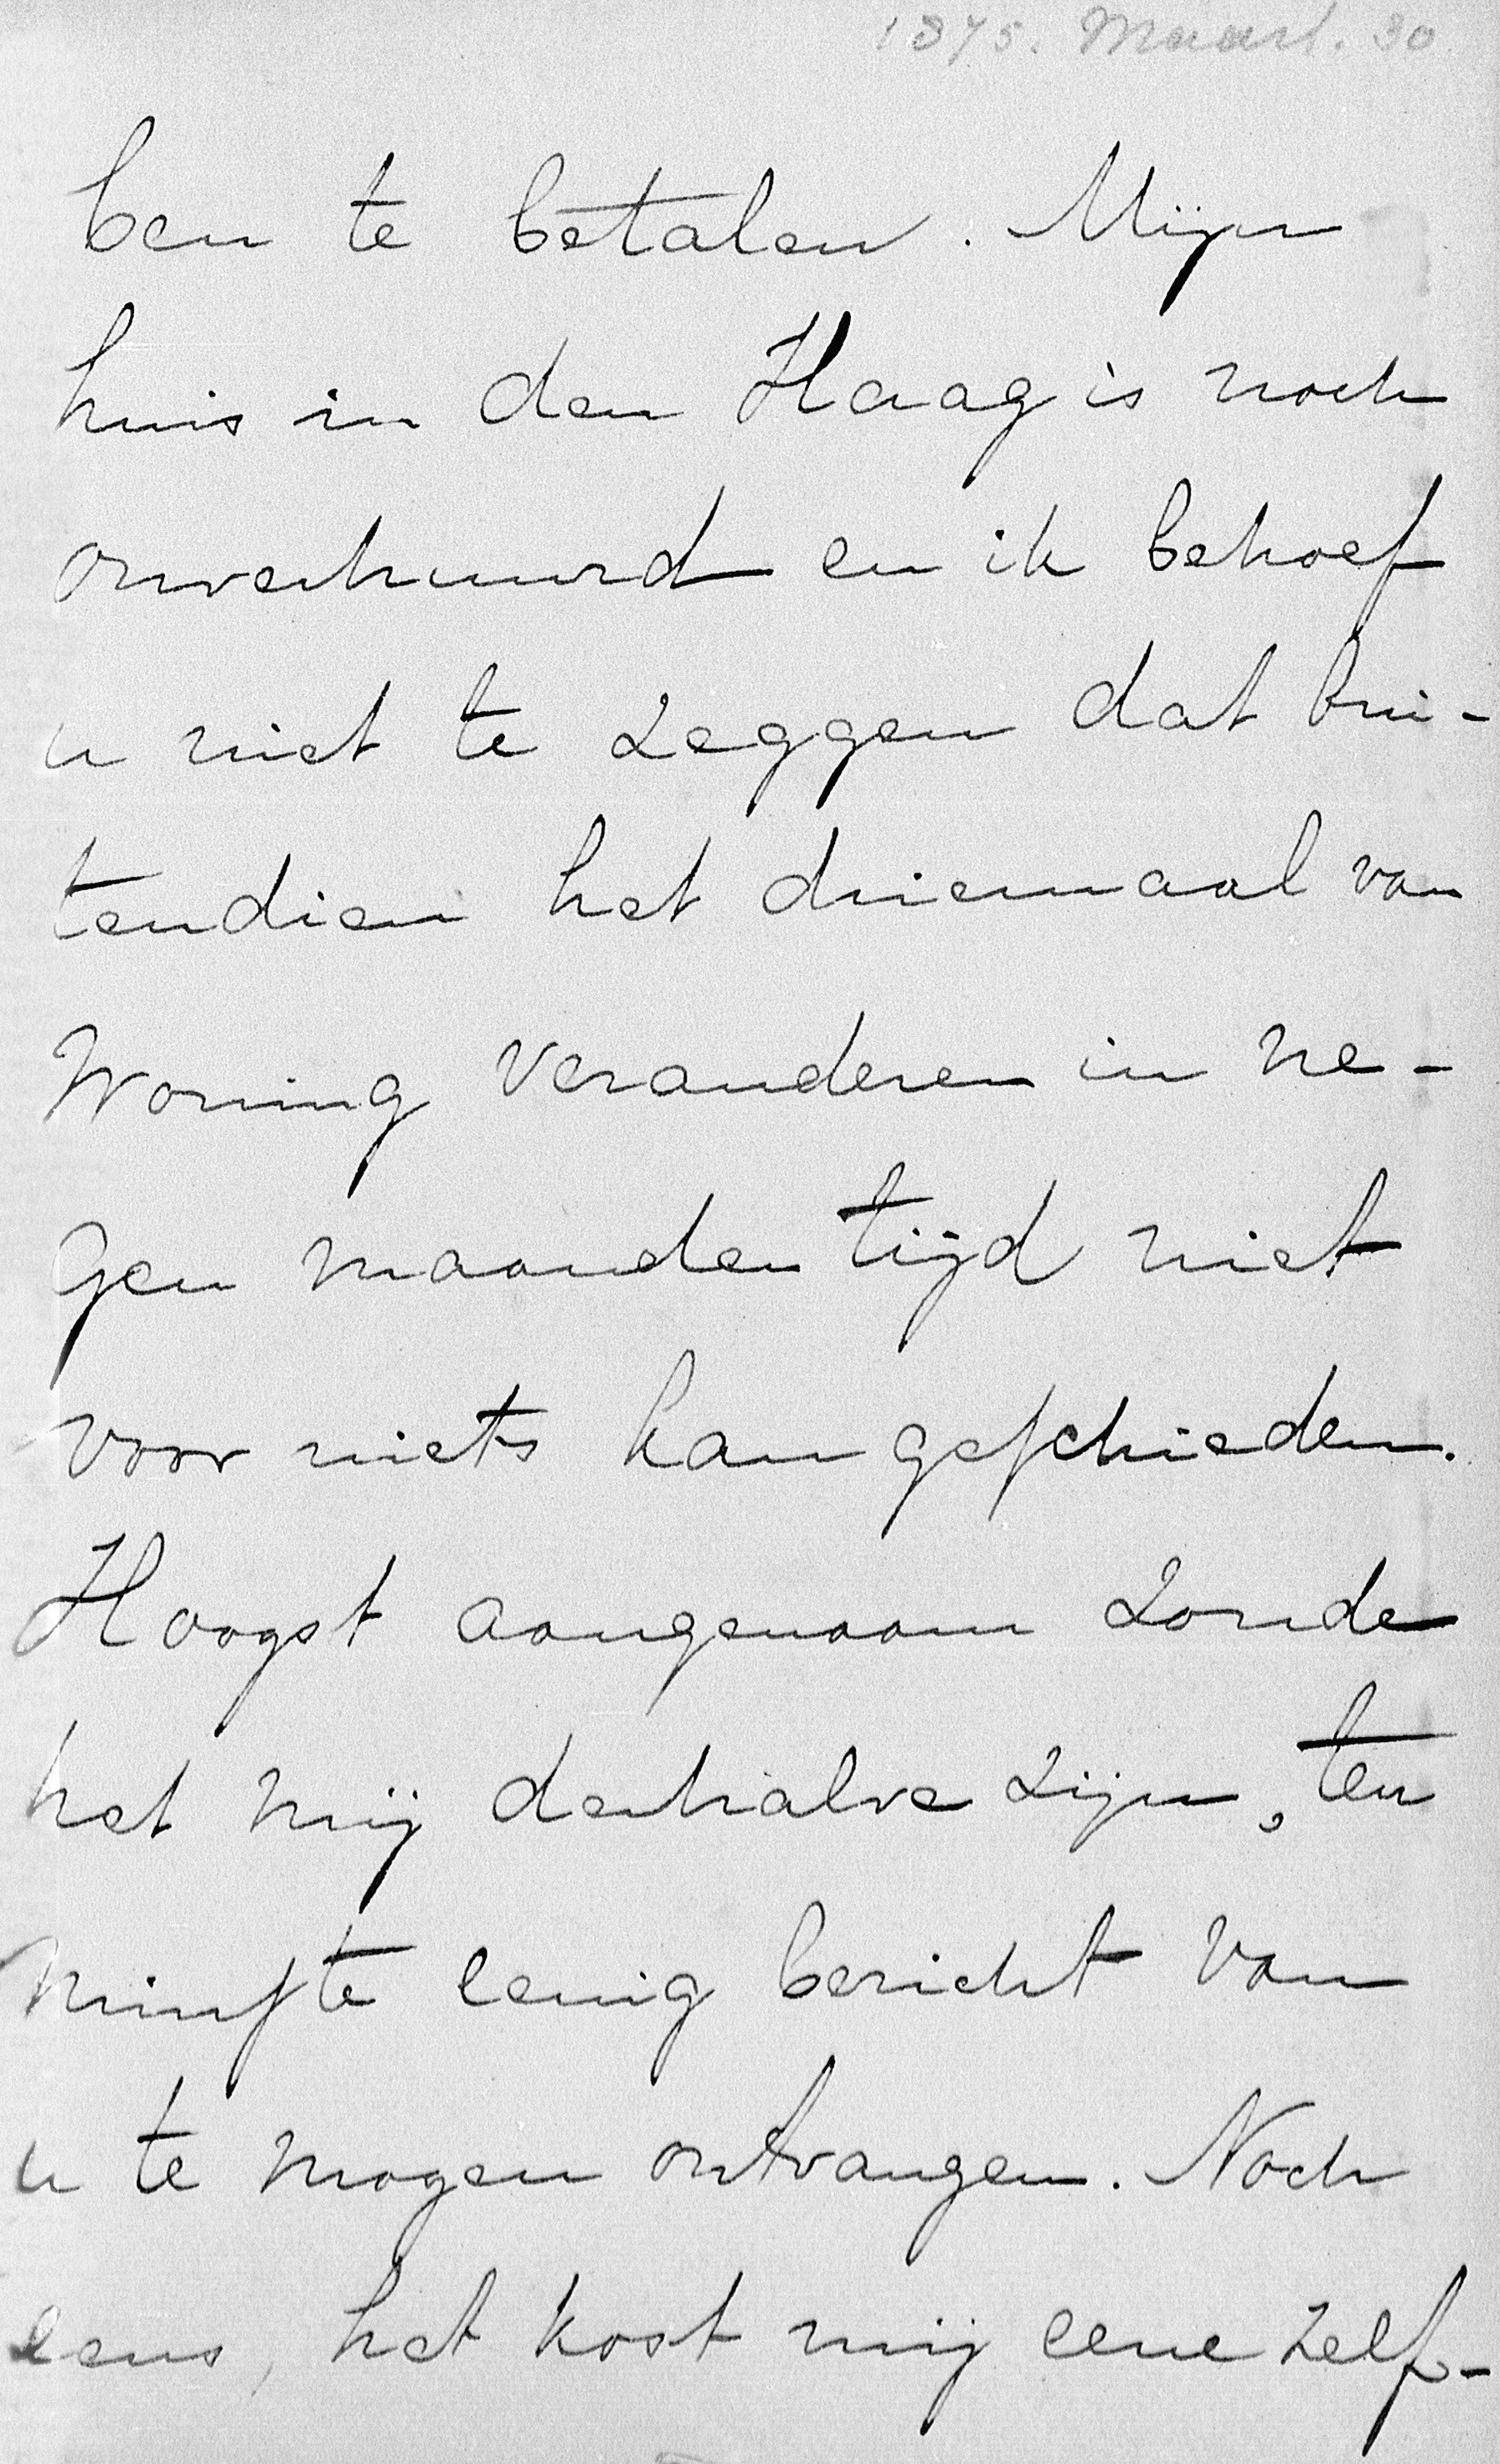 1875. Maart. 30
ben te betalen. Mijn
huis in den Haag is noch
onverhuurd en ik behoef
u niet te zeggen dat bui-
tendien het driemaal van
Woning veranderen in ne-
gen maanden tijd niet
voor niets kan geschieden.
Hoogst aangenaam zonde
het mij derhalve zijn, ten
minste eenig bericht van
u te mogen ontvangen. Noch
eens, het kost mij eene zelf-